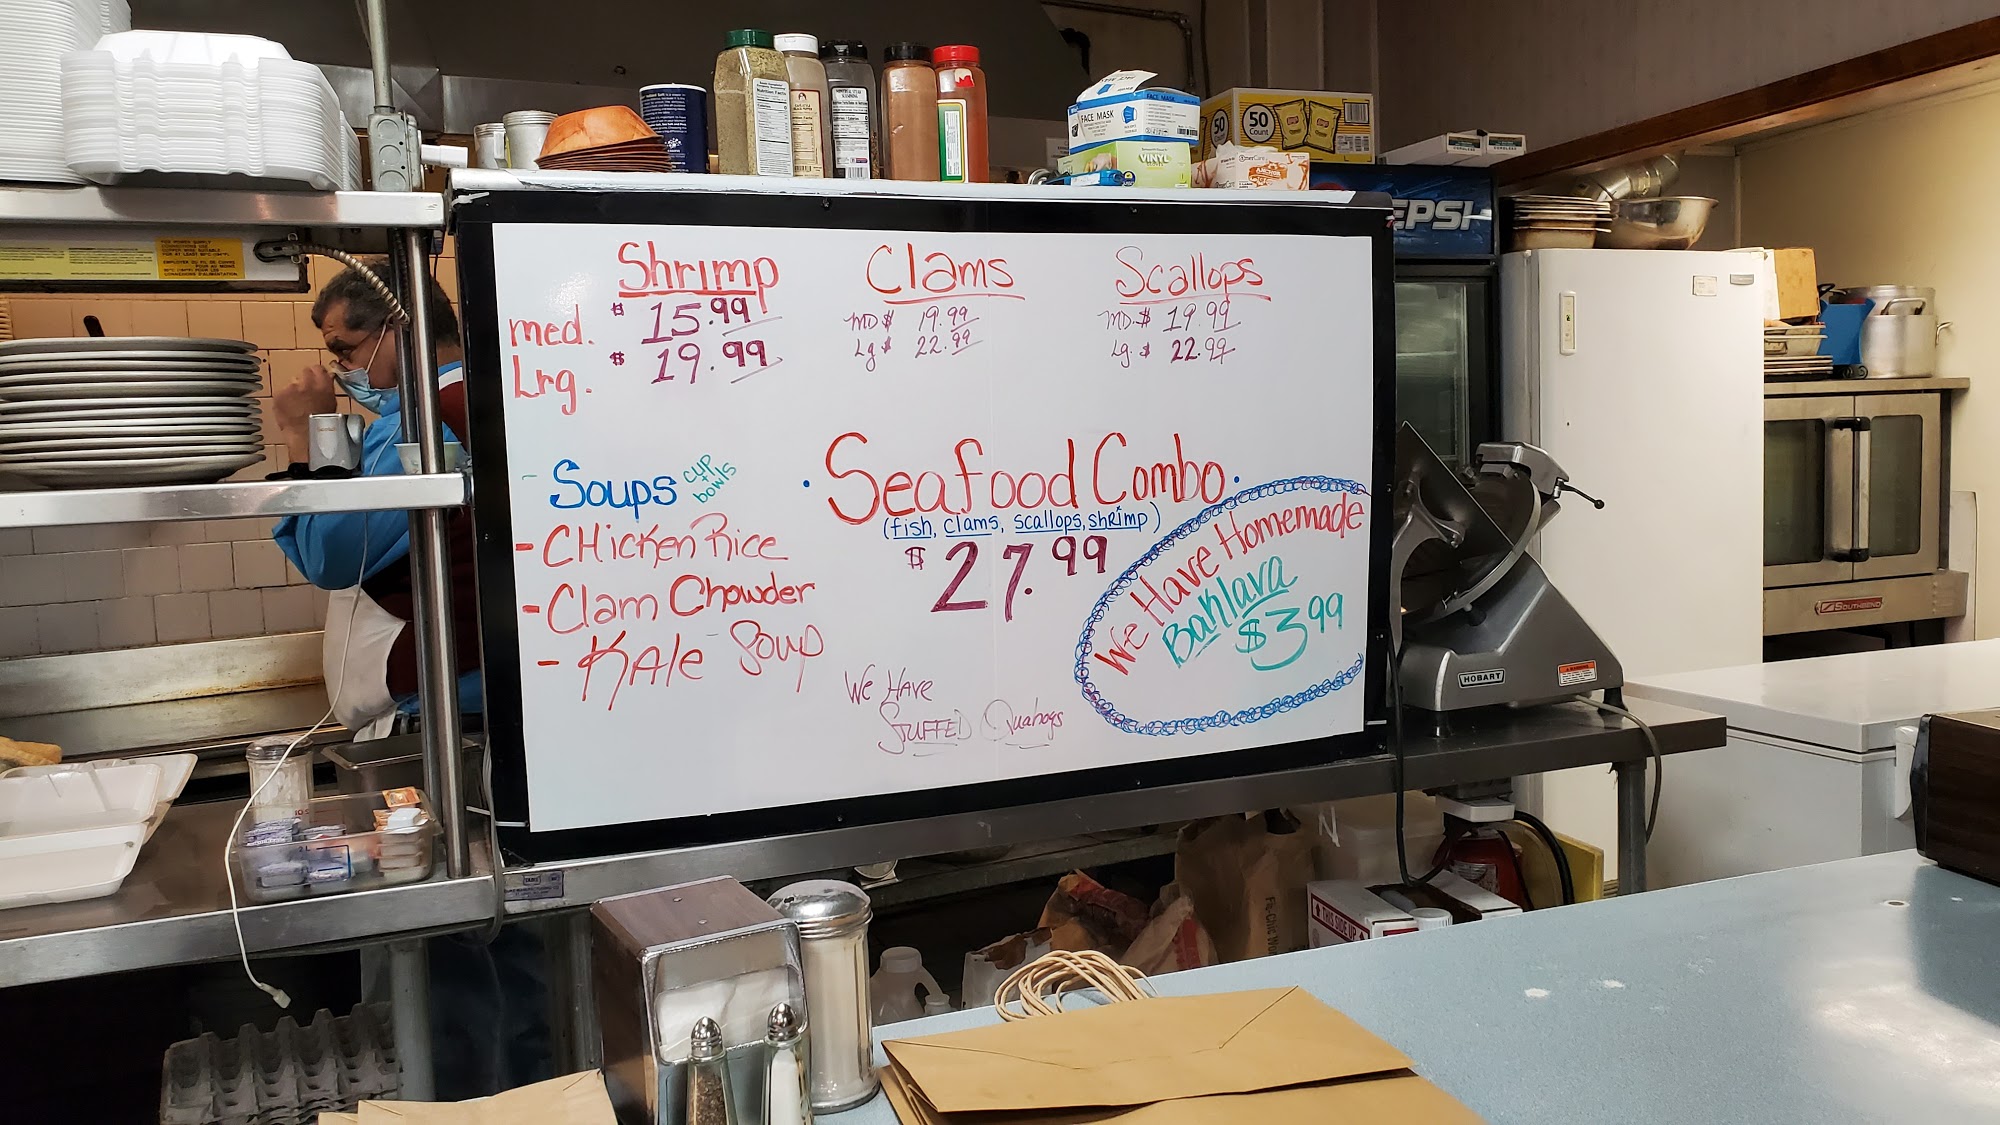 Shrimp
med. $ 15.99
Lrg. $ 19.99
Clams
MD $ 19.99
Lg $ 22.99
Scallops
MD. $ 19.99
Lg. $ 22.99
- Soups cup + bowls
- CHicken Rice
- Clam Chowder
- KAle Soup
• Seafood Combo •
(fish, clams, scallops, shrimp)
$ 27.99
We Have
STUFFED Quahogs
We Have Homemade
Baklava
$3.99
FACE MASK
VINYL
50
50
Count
EPSI
HOBART
SOUTHBEND
THIS SIDE UP